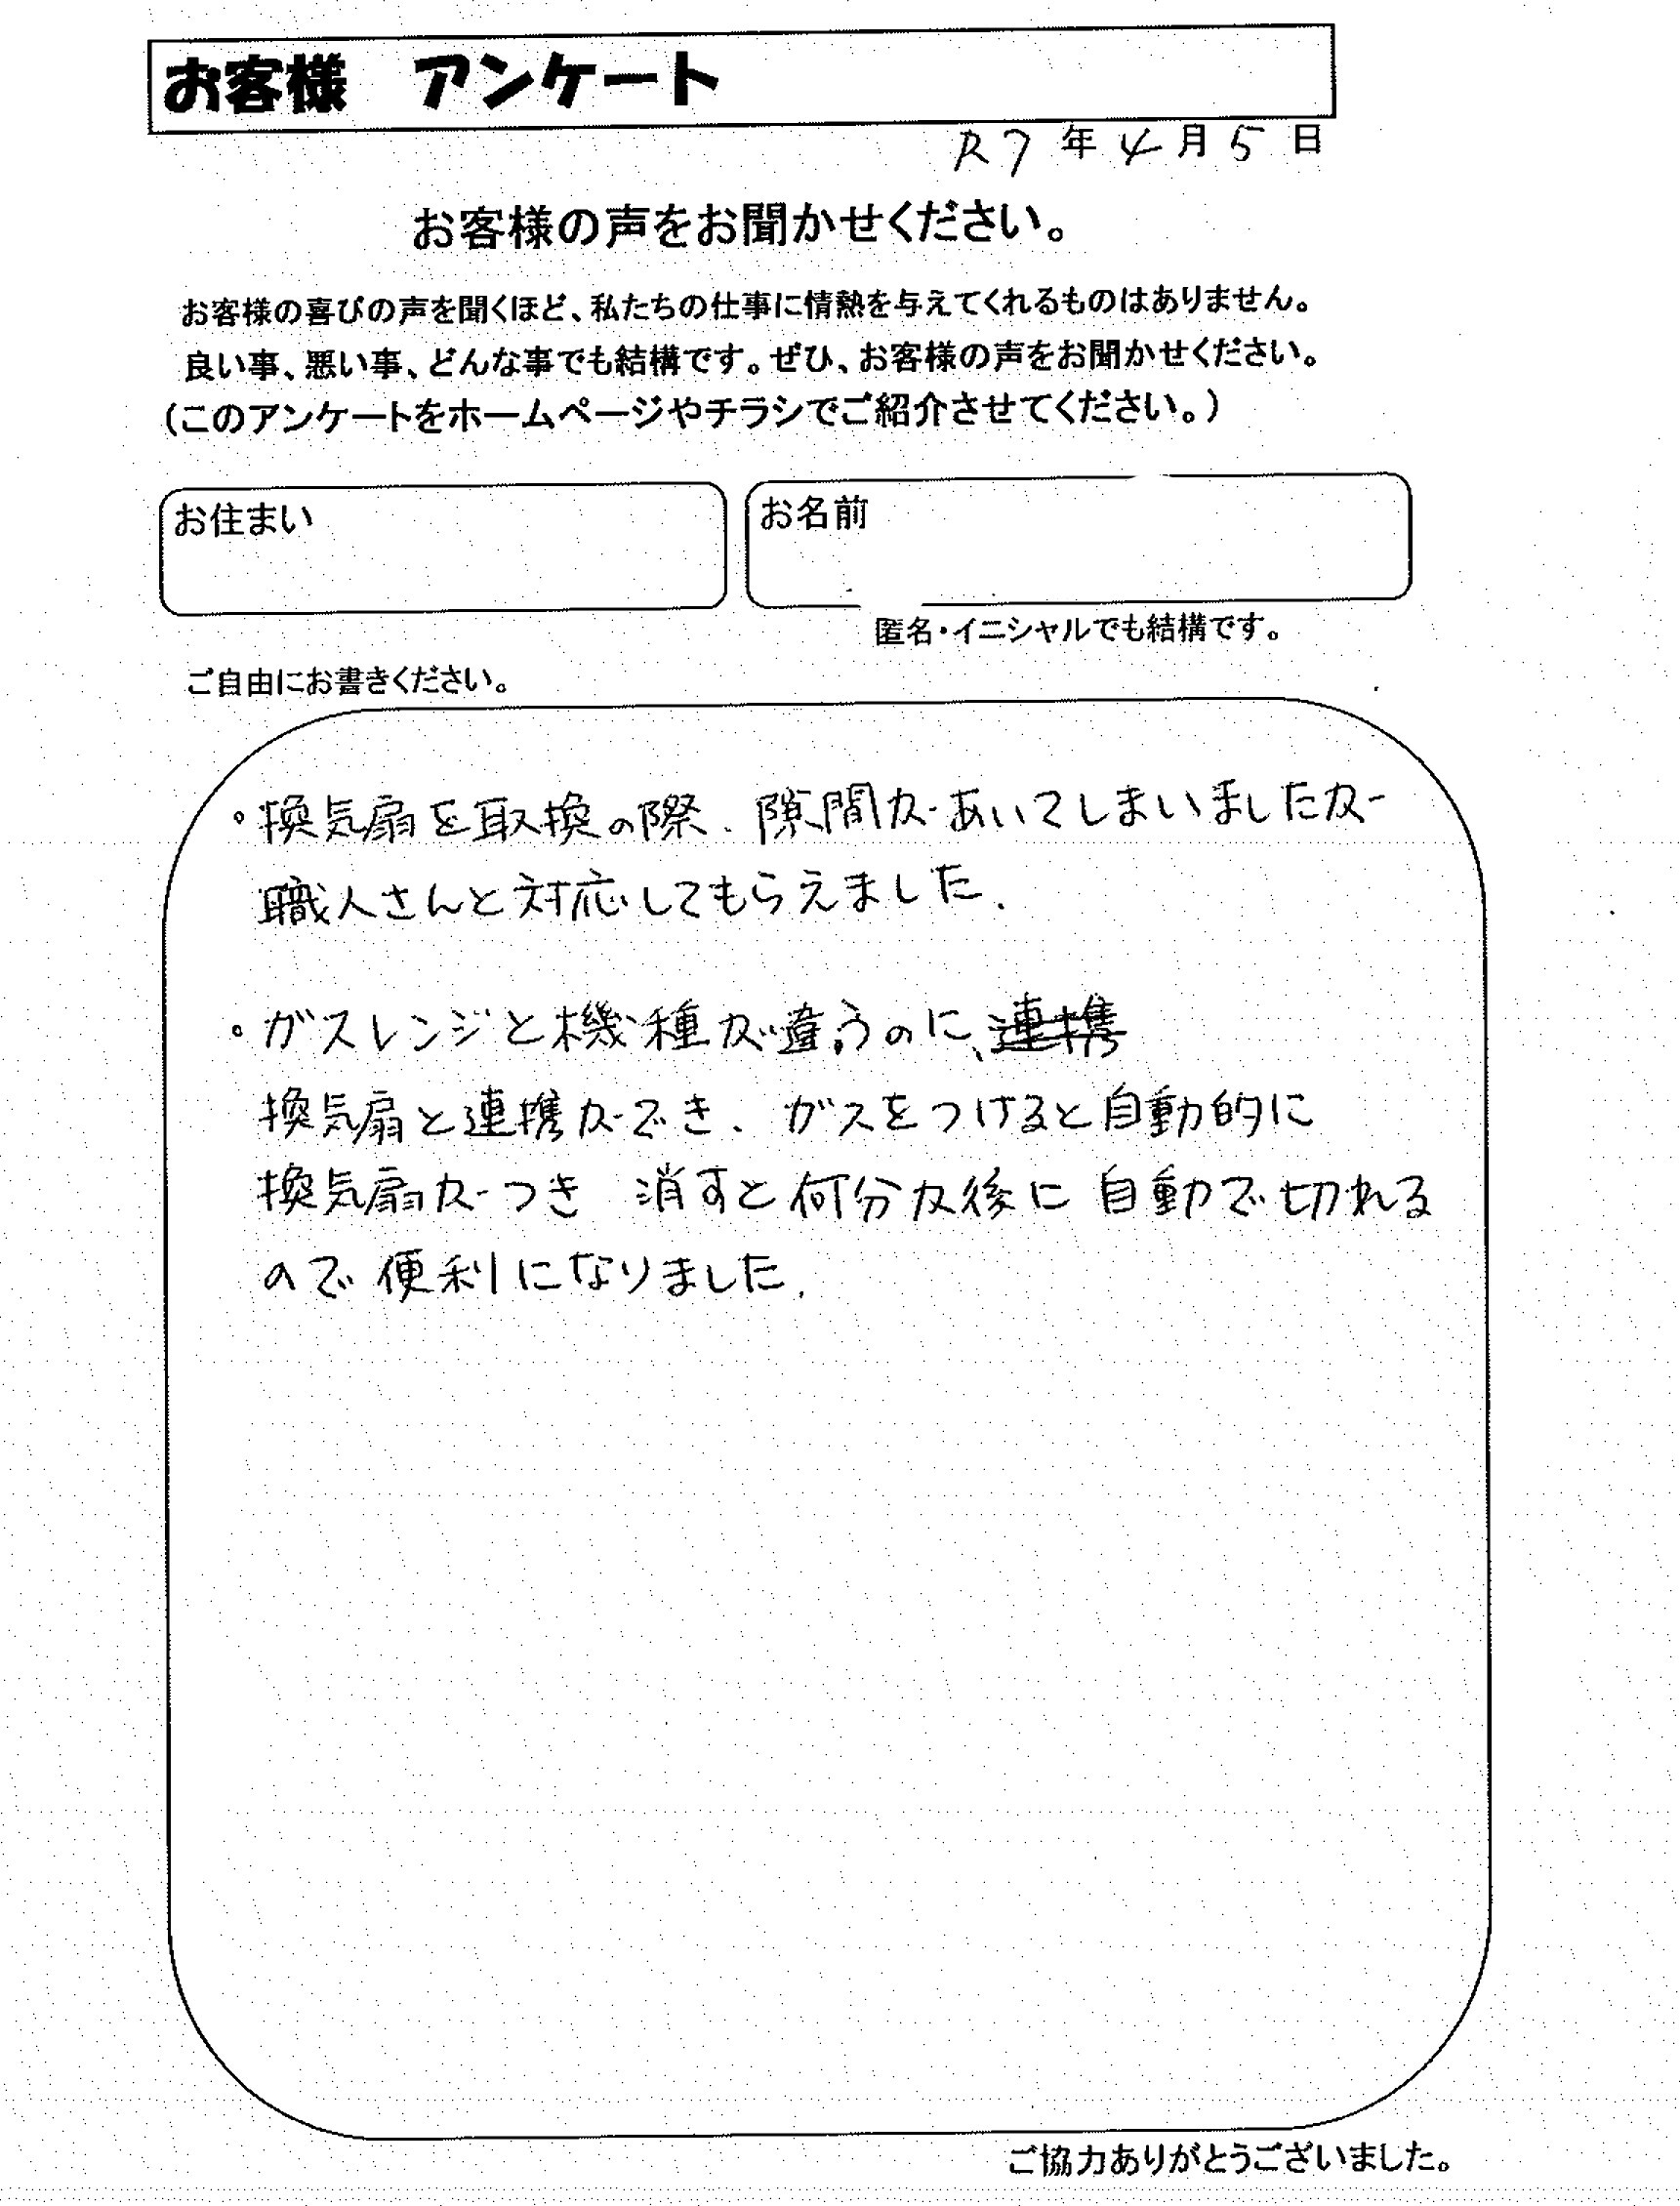 お客様　アンケート
R7年4月5日
お客様の声をお聞かせください。
お客様の喜びの声を聞くほど、私たちの仕事に情熱を与えてくれるものはありません。
良い事、悪い事、どんな事でも結構です。ぜひ、お客様の声をお聞かせください。
（このアンケートをホームページやチラシでご紹介させてください。）
お住まい
お名前
匿名・イニシャルでも結構です。
ご自由にお書きください。
・換気扇を取換の際、隙間があいてしまいましたが
職人さんと対応してもらえました。
・ガスレンジと機種が違うのに、連携
換気扇と連携ができ、ガスをつけると自動的に
換気扇がつき 消すと何分か後に自動で切れる
ので便利になりました。
ご協力ありがとうございました。